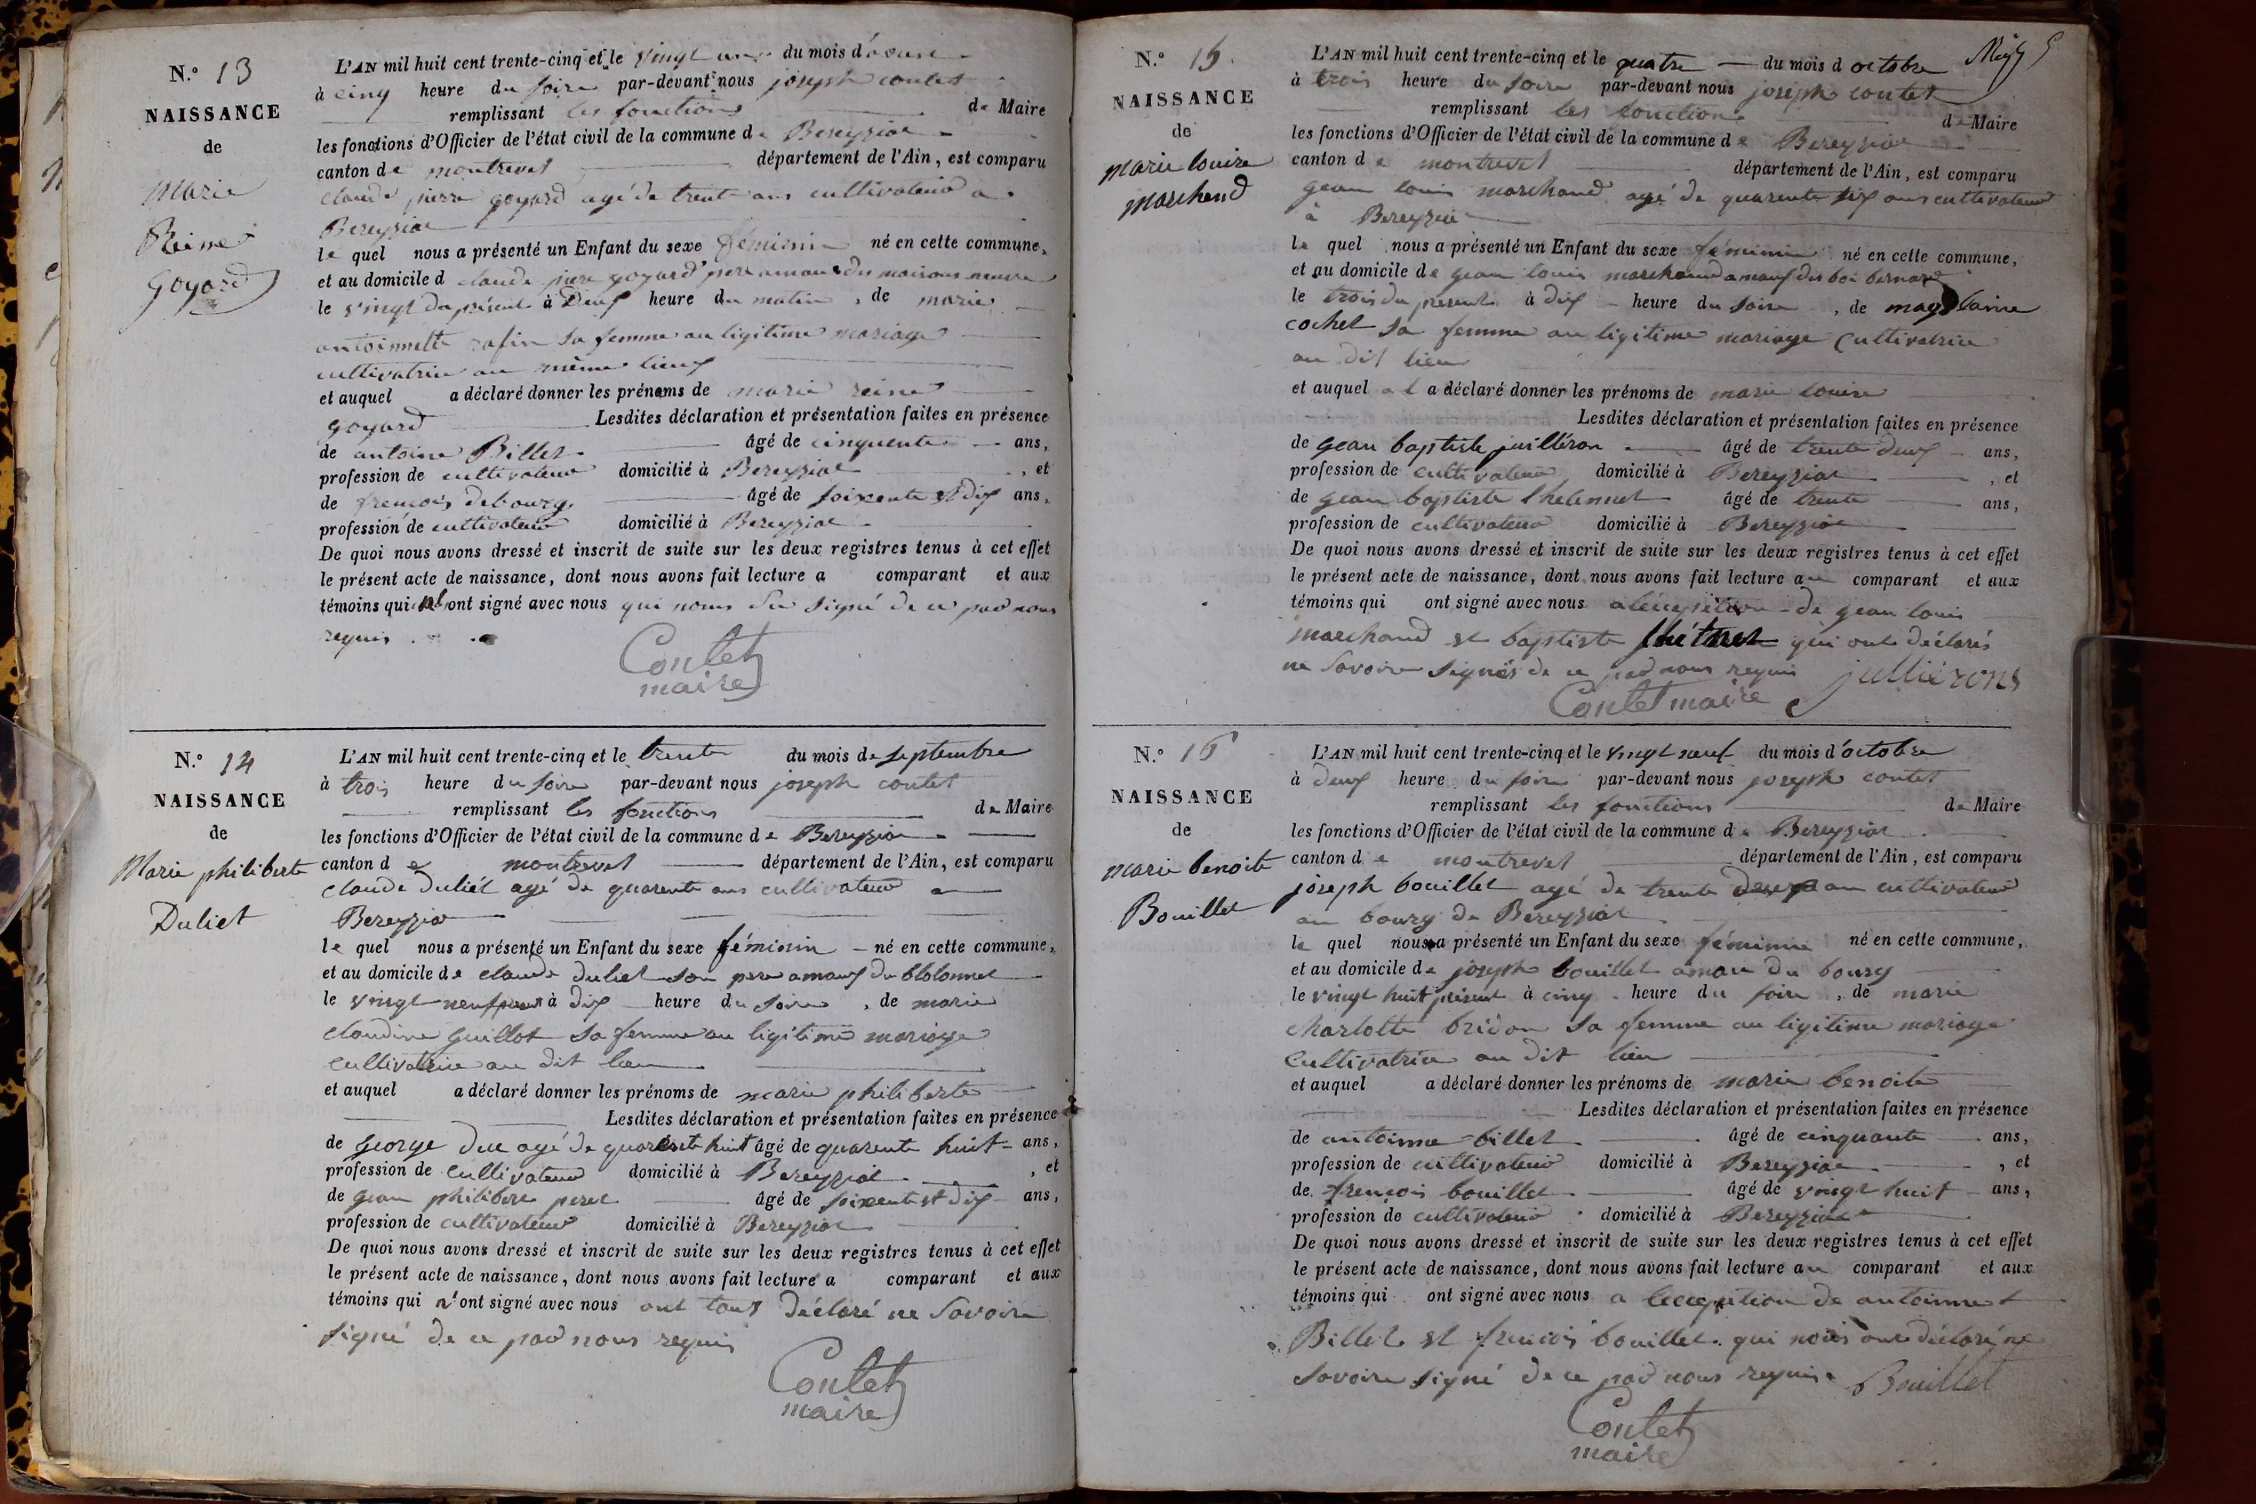 N.º 13
NAISSANCE
de
Marie
Reine
Goyard
L'AN mil huit cent trente-cinq et le vingt un du mois d'aoust
à cinq heure du soire par-devant nous joseph contet
remplissant les fonctions de Maire
les fonctions d'Officier de l'état civil de la commune de Bereyziat
canton de montrevel département de l'Ain, est comparu
claude pierre goyard agé de trente ans cultivateur a
Bereyziat
le quel nous a présenté un Enfant du sexe féminin né en cette commune,
et au domicile d claude piere goyard pere amas des maisons neuve
le vingt du présent à Deux heure du matin, de marie
antoinnette rafin sa femme au ligitime mariage
cultivatrice au même lieux
et auquel a déclaré donner les prénoms de marie reine
goyard Lesdites déclaration et présentation faites en présence
de antoine Billet âgé de cinquente ans,
profession de cultivateur domicilié à Bereyziat, et
de frencois debourg âgé de soixente et dix ans,
profession de cultivateur domicilié à Bereyziat
De quoi nous avons dressé et inscrit de suite sur les deux registres tenus à cet effet
le présent acte de naissance, dont nous avons fait lecture a comparant et aux
témoins qui n'ont signé avec nous qui nous du signé de ce par nous
requis
Contet
maire
N.º 14
NAISSANCE
de
Marie philiberte
Duliet
L'AN mil huit cent trente-cinq et le trente du mois de septembre
à trois heure du soire par-devant nous joseph contet
remplissant les fonctions de Maire
les fonctions d'Officier de l'état civil de la commune de Bereyziat
canton de montrevel département de l'Ain, est comparu
claude duliét agé de quarente ans cultivateur a
Bereyziat
le quel nous a présenté un Enfant du sexe féminin né en cette commune,
et au domicile de claude duliet son pere amas du blolonnet
le vingt neuf à dix heure du soire, de marie
claudine guillot sa femme au ligitime mariage
cultivatrice au dit lieu
et auquel a déclaré donner les prénoms de marie philiberte
Lesdites déclaration et présentation faites en présence
de george duc agé de quarente huit âgé de quarente huit ans,
profession de cultivateur domicilié à Bereyziat, et
de gean philibere peret âgé de soixente et dix ans,
profession de cultivateur domicilié à Bereyziat
De quoi nous avons dressé et inscrit de suite sur les deux registres tenus à cet effet
le présent acte de naissance, dont nous avons fait lecture a comparant et aux
témoins qui n'ont signé avec nous ont tous déclaré ne savoire
signé de ce par nous requis
Contet
maire
N.º 15
NAISSANCE
de
marie louise
marchand
L'AN mil huit cent trente-cinq et le quatre du mois d octobre
à trois heure du soire par-devant nous joseph contet
remplissant les fonctions de Maire
les fonctions d'Officier de l'état civil de la commune de Bereyziat
canton de montrevel département de l'Ain, est comparu
gean louis marchand agé de quarente six ans cultivateur
à Bereyziat
le quel nous a présenté un Enfant du sexe féminin né en cette commune,
et au domicile de gean louis marchand amas du boi bernard
le trois du present à dix heure du soire, de magdelaine
cochet sa femme au ligitime mariage cultivatrice
au dit lieu
et auquel al a déclaré donner les prénoms de marie louise
Lesdites déclaration et présentation faites en présence
de gean baptiste juilléron âgé de trente deux ans,
profession de cultivateur domicilié à Bereyziat, et
de gean baptiste âgé de trente ans,
profession de cultivateur domicilié à Bereyziat
De quoi nous avons dressé et inscrit de suite sur les deux registres tenus à cet effet
le présent acte de naissance, dont nous avons fait lecture au comparant et aux
témoins qui ont signé avec nous de gean louis
marchand et baptiste qui ont déclarés
ne savoire signés de ce par nous requis julliérons
Contet maire
N.º 16
NAISSANCE
de
marie benoite
Bouillet
L'AN mil huit cent trente-cinq et le vingt neuf du mois d'octobre
à deux heure du soire par-devant nous joseph contet
remplissant les fonctions de Maire
les fonctions d'Officier de l'état civil de la commune de Bereyziat
canton de montrevel département de l'Ain, est comparu
joseph bouillet agé de trente deux an cultivateur
au bourg de Bereyziat
le quel nous a présenté un Enfant du sexe féminin né en cette commune,
et au domicile de joseph bouillet amas du bourg
le vingt huit présent à cinq heure du soire, de marie
charlotte bridon sa femme au ligitime mariage
cultivatrice au dit lieu
et auquel a déclaré donner les prénoms de marie benoite
Lesdites déclaration et présentation faites en présence
de antoinne billet âgé de cinquante ans,
profession de cultivateur domicilié à Bereyziat, et
de frencois bouillet âgé de vingt huit ans,
profession de cultivateur domicilié à Bereyziat
De quoi nous avons dressé et inscrit de suite sur les deux registres tenus à cet effet
le présent acte de naissance, dont nous avons fait lecture au comparant et aux
témoins qui ont signé avec nous a lecceptition de antoinne
Billet et frencois bouillet qui nous ont déclaré ne
savoire signé de ce par nous requis Bouillet
Contet
maire